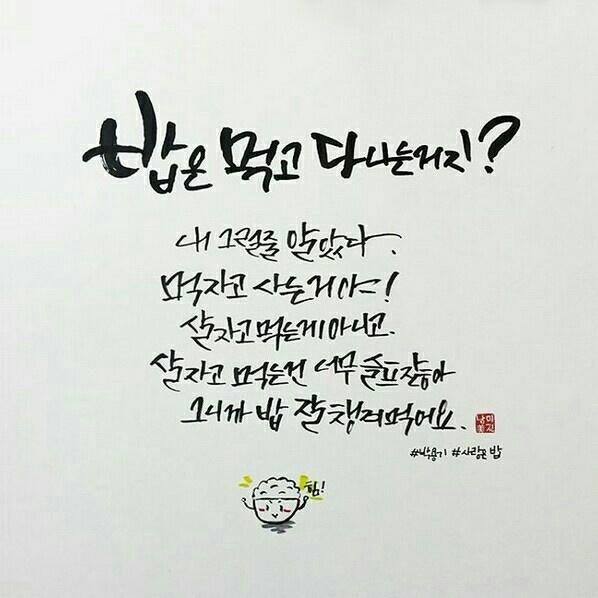 밥은 먹고 다니는거지?
내 그럴줄 알았다.
먹자고 사는거야!
살자고 먹는게 아니고.
살자고 먹는건 너무 슬프잖아
그니까 밥 잘 챙겨먹어요.
#박용기 #사랑은 밥
힘!